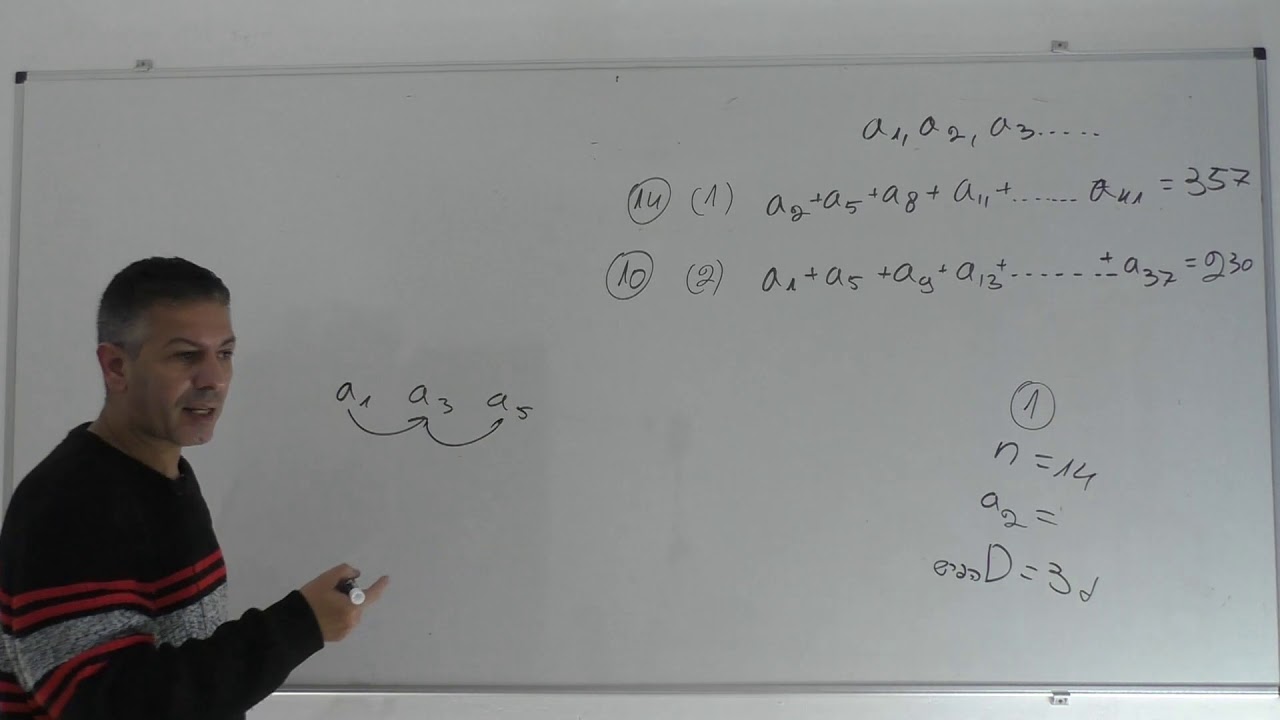 a₁, a₂, a₃.....
⑭ (1) a₂+a₅+a₈+a₁₁+....... a₄₁ = 357
⑩ (2) a₁+a₅+a₉+a₁₃+........+a₃₇ = 230
a₁ a₃ a₅
①
n = 14
a₂ =
הפרש D = 3d